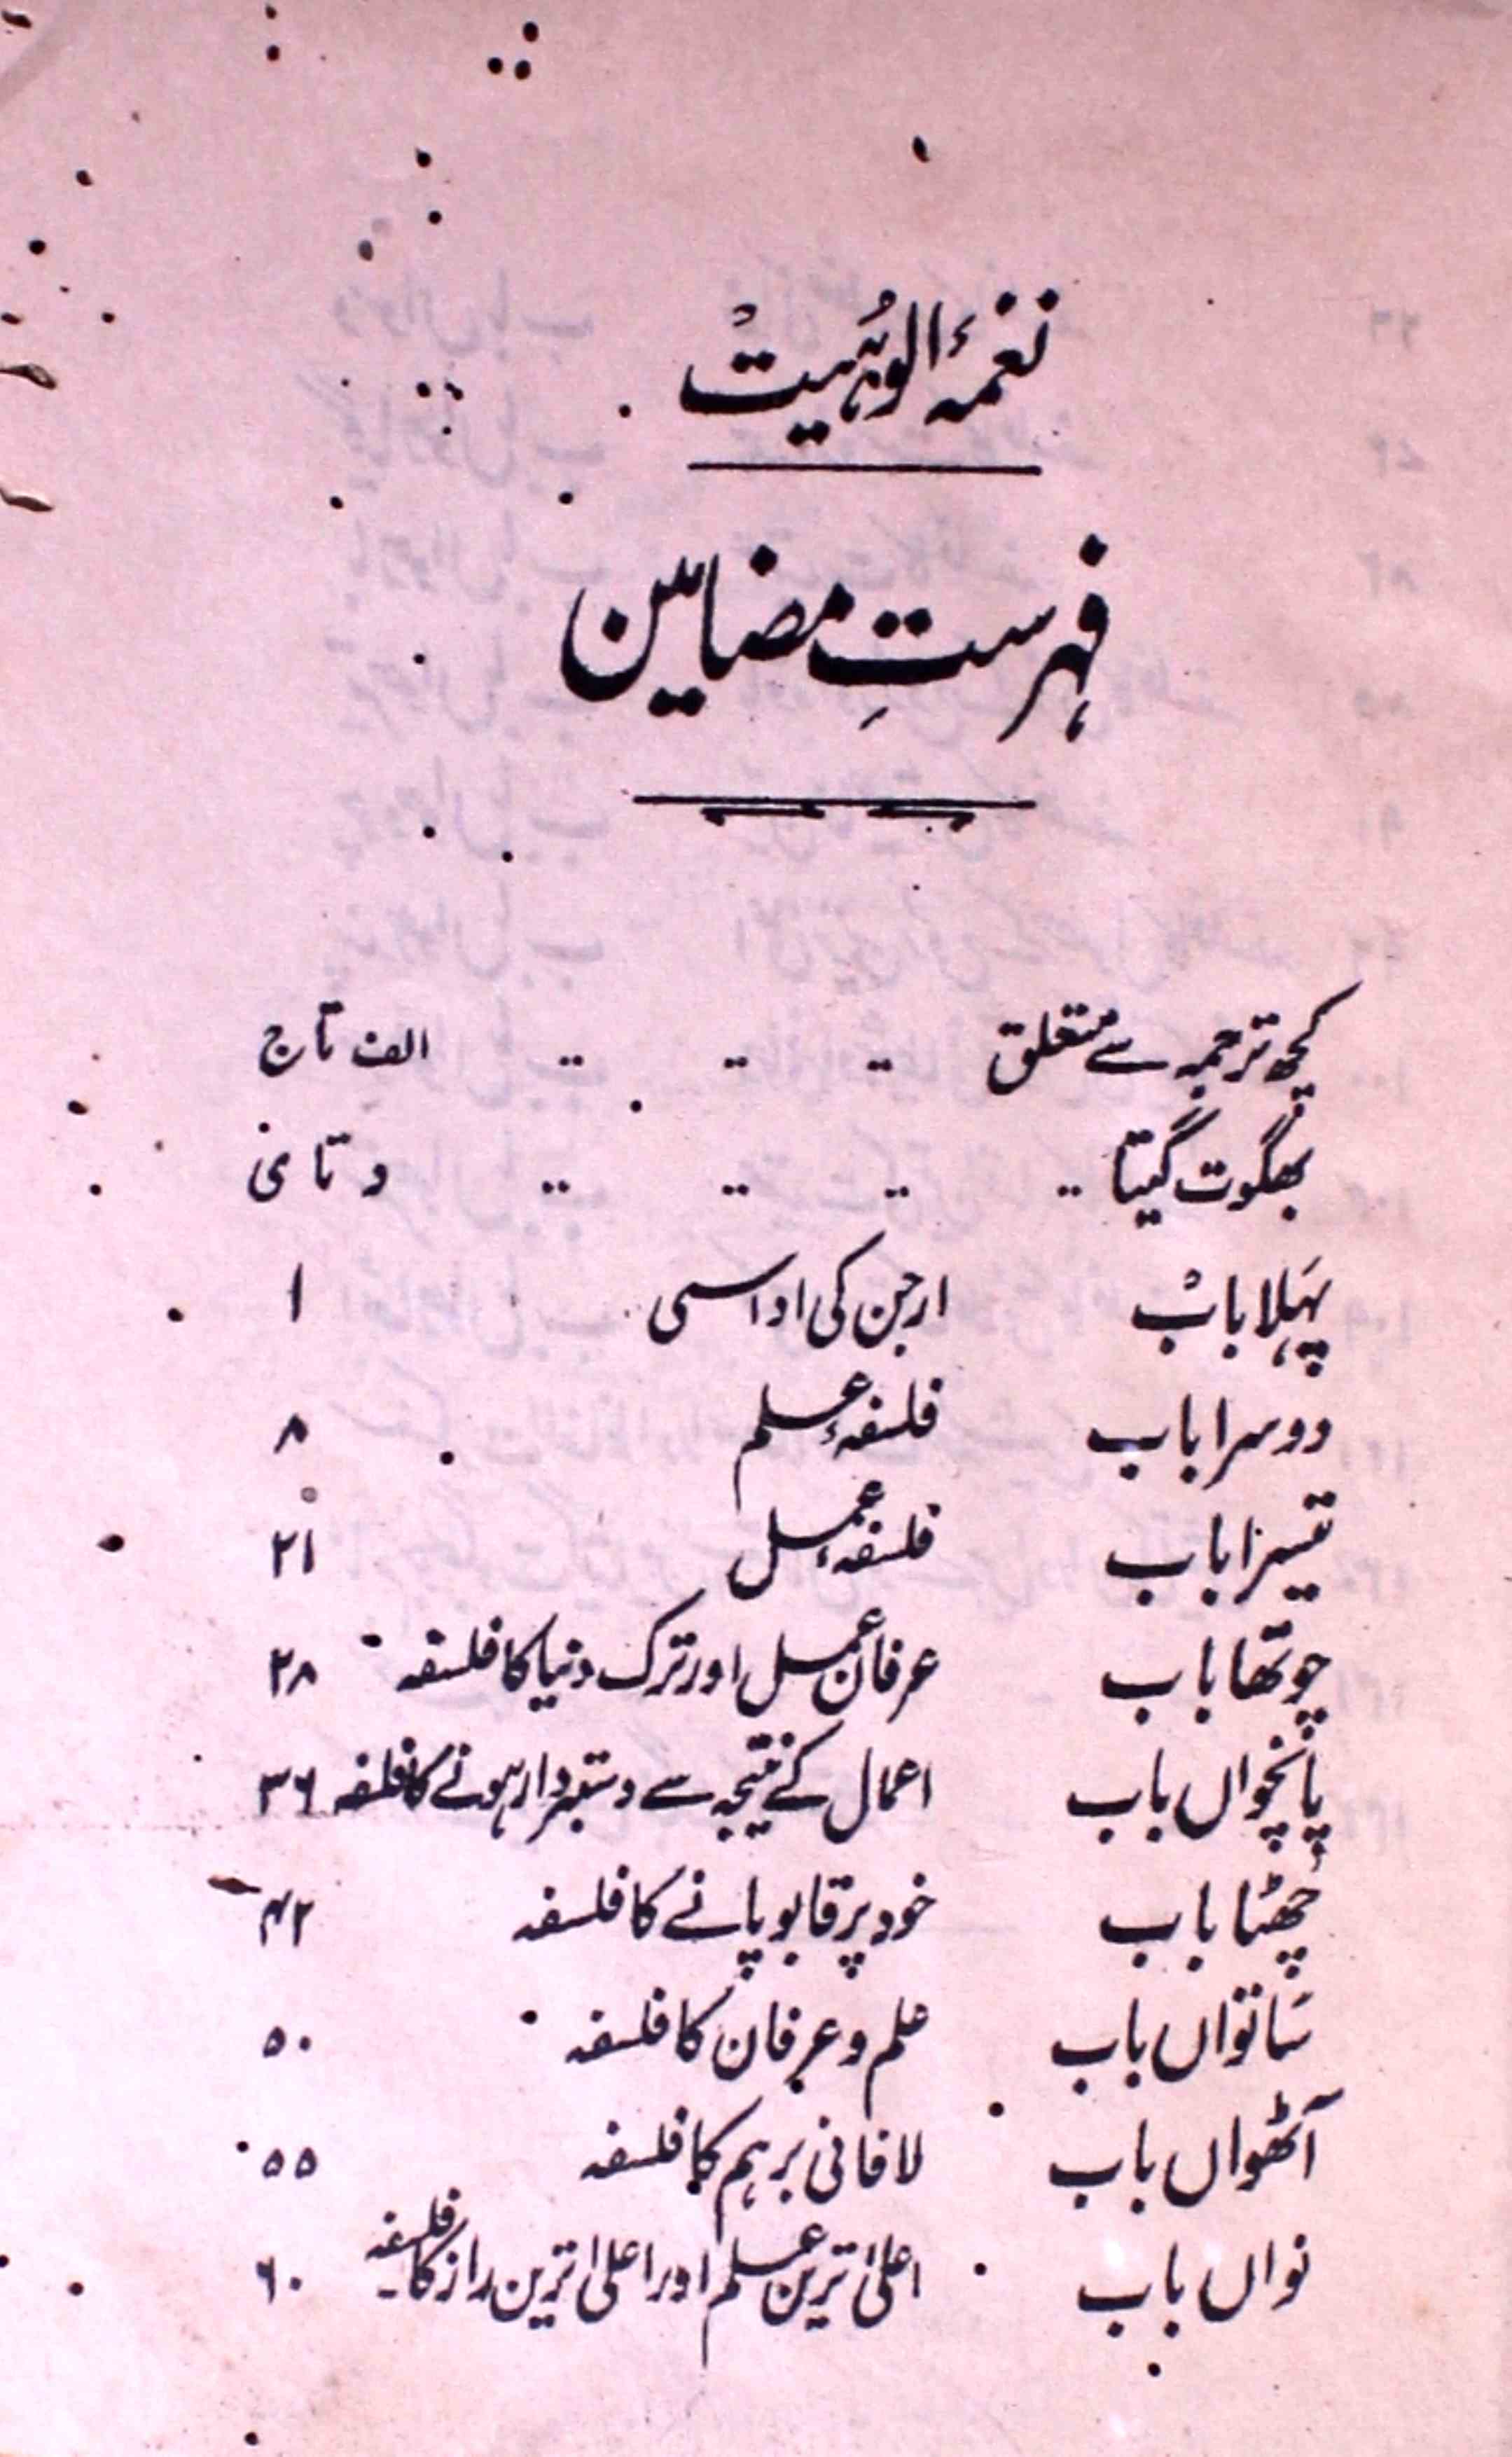 نغمۂ الوُہیت
فہرستِ مضامین
کچھ ترجمہ سے متعلق .. .. .. الف تا ج
بھگوت گیتا .. .. .. .. د تا
پہلا باب ارجن کی اداسی ۱
دوسرا باب فلسفۂ علم ۸
تیسرا باب فلسفۂ عمل ۲۱
چوتھا باب عرفانِ عمل اور ترک دنیا کا فلسفہ ۲۸
پانچواں باب اعمال کے نتیجہ سے دستبردار ہونے کا فلسفہ ۳۶
چھٹا باب خود پر قابو پانے کا فلسفہ ۴۲
ساتواں باب علم و عرفان کا فلسفہ ۵۰
آٹھواں باب لافانی برہم کا فلسفہ ۵۵
نواں باب اعلیٰ ترین علم اور اعلیٰ ترین راز کا فلسفہ ۶۰